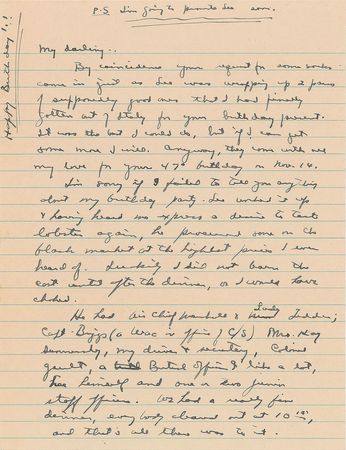 P.S I'm going to promote Lee soon.
Happy Birthday!!
My darling..
By coincidence your request for some socks
came in just as Lee was wrapping up 2 pairs
of supposedly good ones that I had finally
gotten out of Italy for your birthday present.
It was the best I could do, but if I can get
some more I will. Anyway, they come with all
my love for your 47th birthday on Nov. 14.
I'm sorry if I failed to tell you anything
about my birthday party. Lee worked it up
& having heard me express a desire to taste
lobster again, he procured some on the
black market at the highest prices I ever
heard of. Luckily I did not learn the
cost until after the dinner, or I would have
choked.
He had Air Chief Marshall & Lady Tedder;
Capt. Briggs (a Wac in office of C/S) Mrs. Kay
Summersby, my driver & secretary, Colonel
Gault, a British Officer I like a lot,
himself and one or two junior
staff officers. We had a really fine
dinner, every body cleared out at 10:15,
and that's all there was to it.